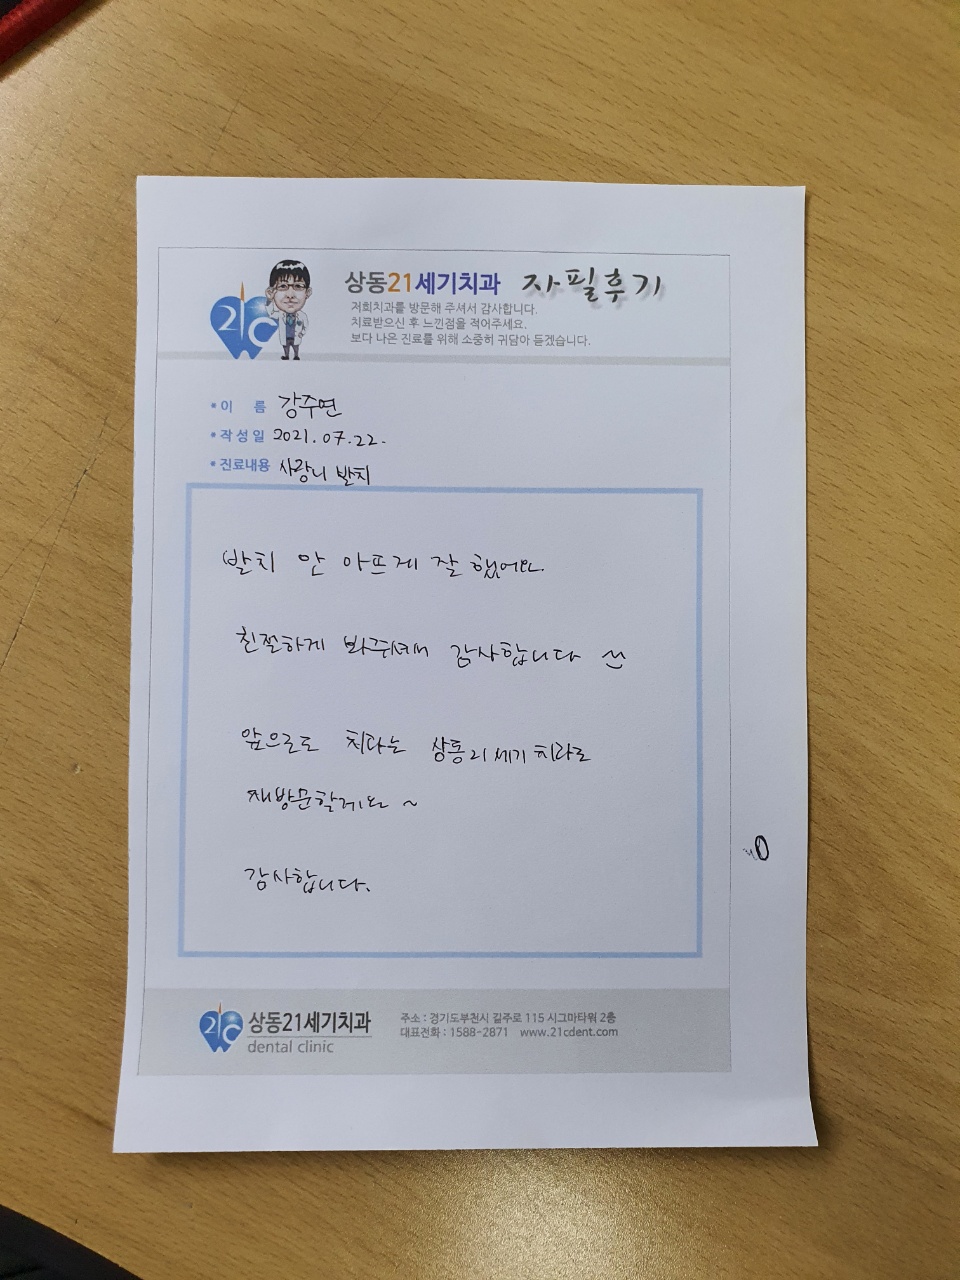 상동21세기치과 자필후기
저희치과를 방문해 주셔서 감사합니다.
치료받으신 후 느낀점을 적어주세요.
보다 나은 진료를 위해 소중히 귀담아 듣겠습니다.
21C
*이 름 강주연
*작성일 2021.07.22.
*진료내용 사랑니 발치
발치 안 아프게 잘 했어요.
친절하게 봐주셔서 감사합니다
앞으로도 치과는 상동21세기치과로
재방문할게요~
감사합니다.
21C 상동21세기치과
dental clinic
주소 : 경기도부천시 길주로 115 시그마타워 2층
대표전화 : 1588-2871 www.21cdent.com